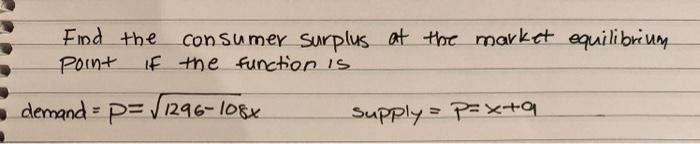 Find the consumer surplus at the market equilibrium
point if the function is
demand = p=√1296-108x supply = p=x+9